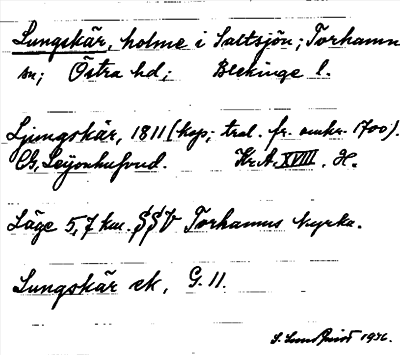 Lungskär, holme i Saltsjön; Torhamn
sn; Östra hd; Blekinge l.
Ljungskär, 1811 (kop; tral. fr. omkr. 1700).
CG. Leijonhufvud. Kr.A. XVIII. H.
Läge 5,7 km. SSV Torhamns kyrka.
Lungskär ek, G. 11.
1936.